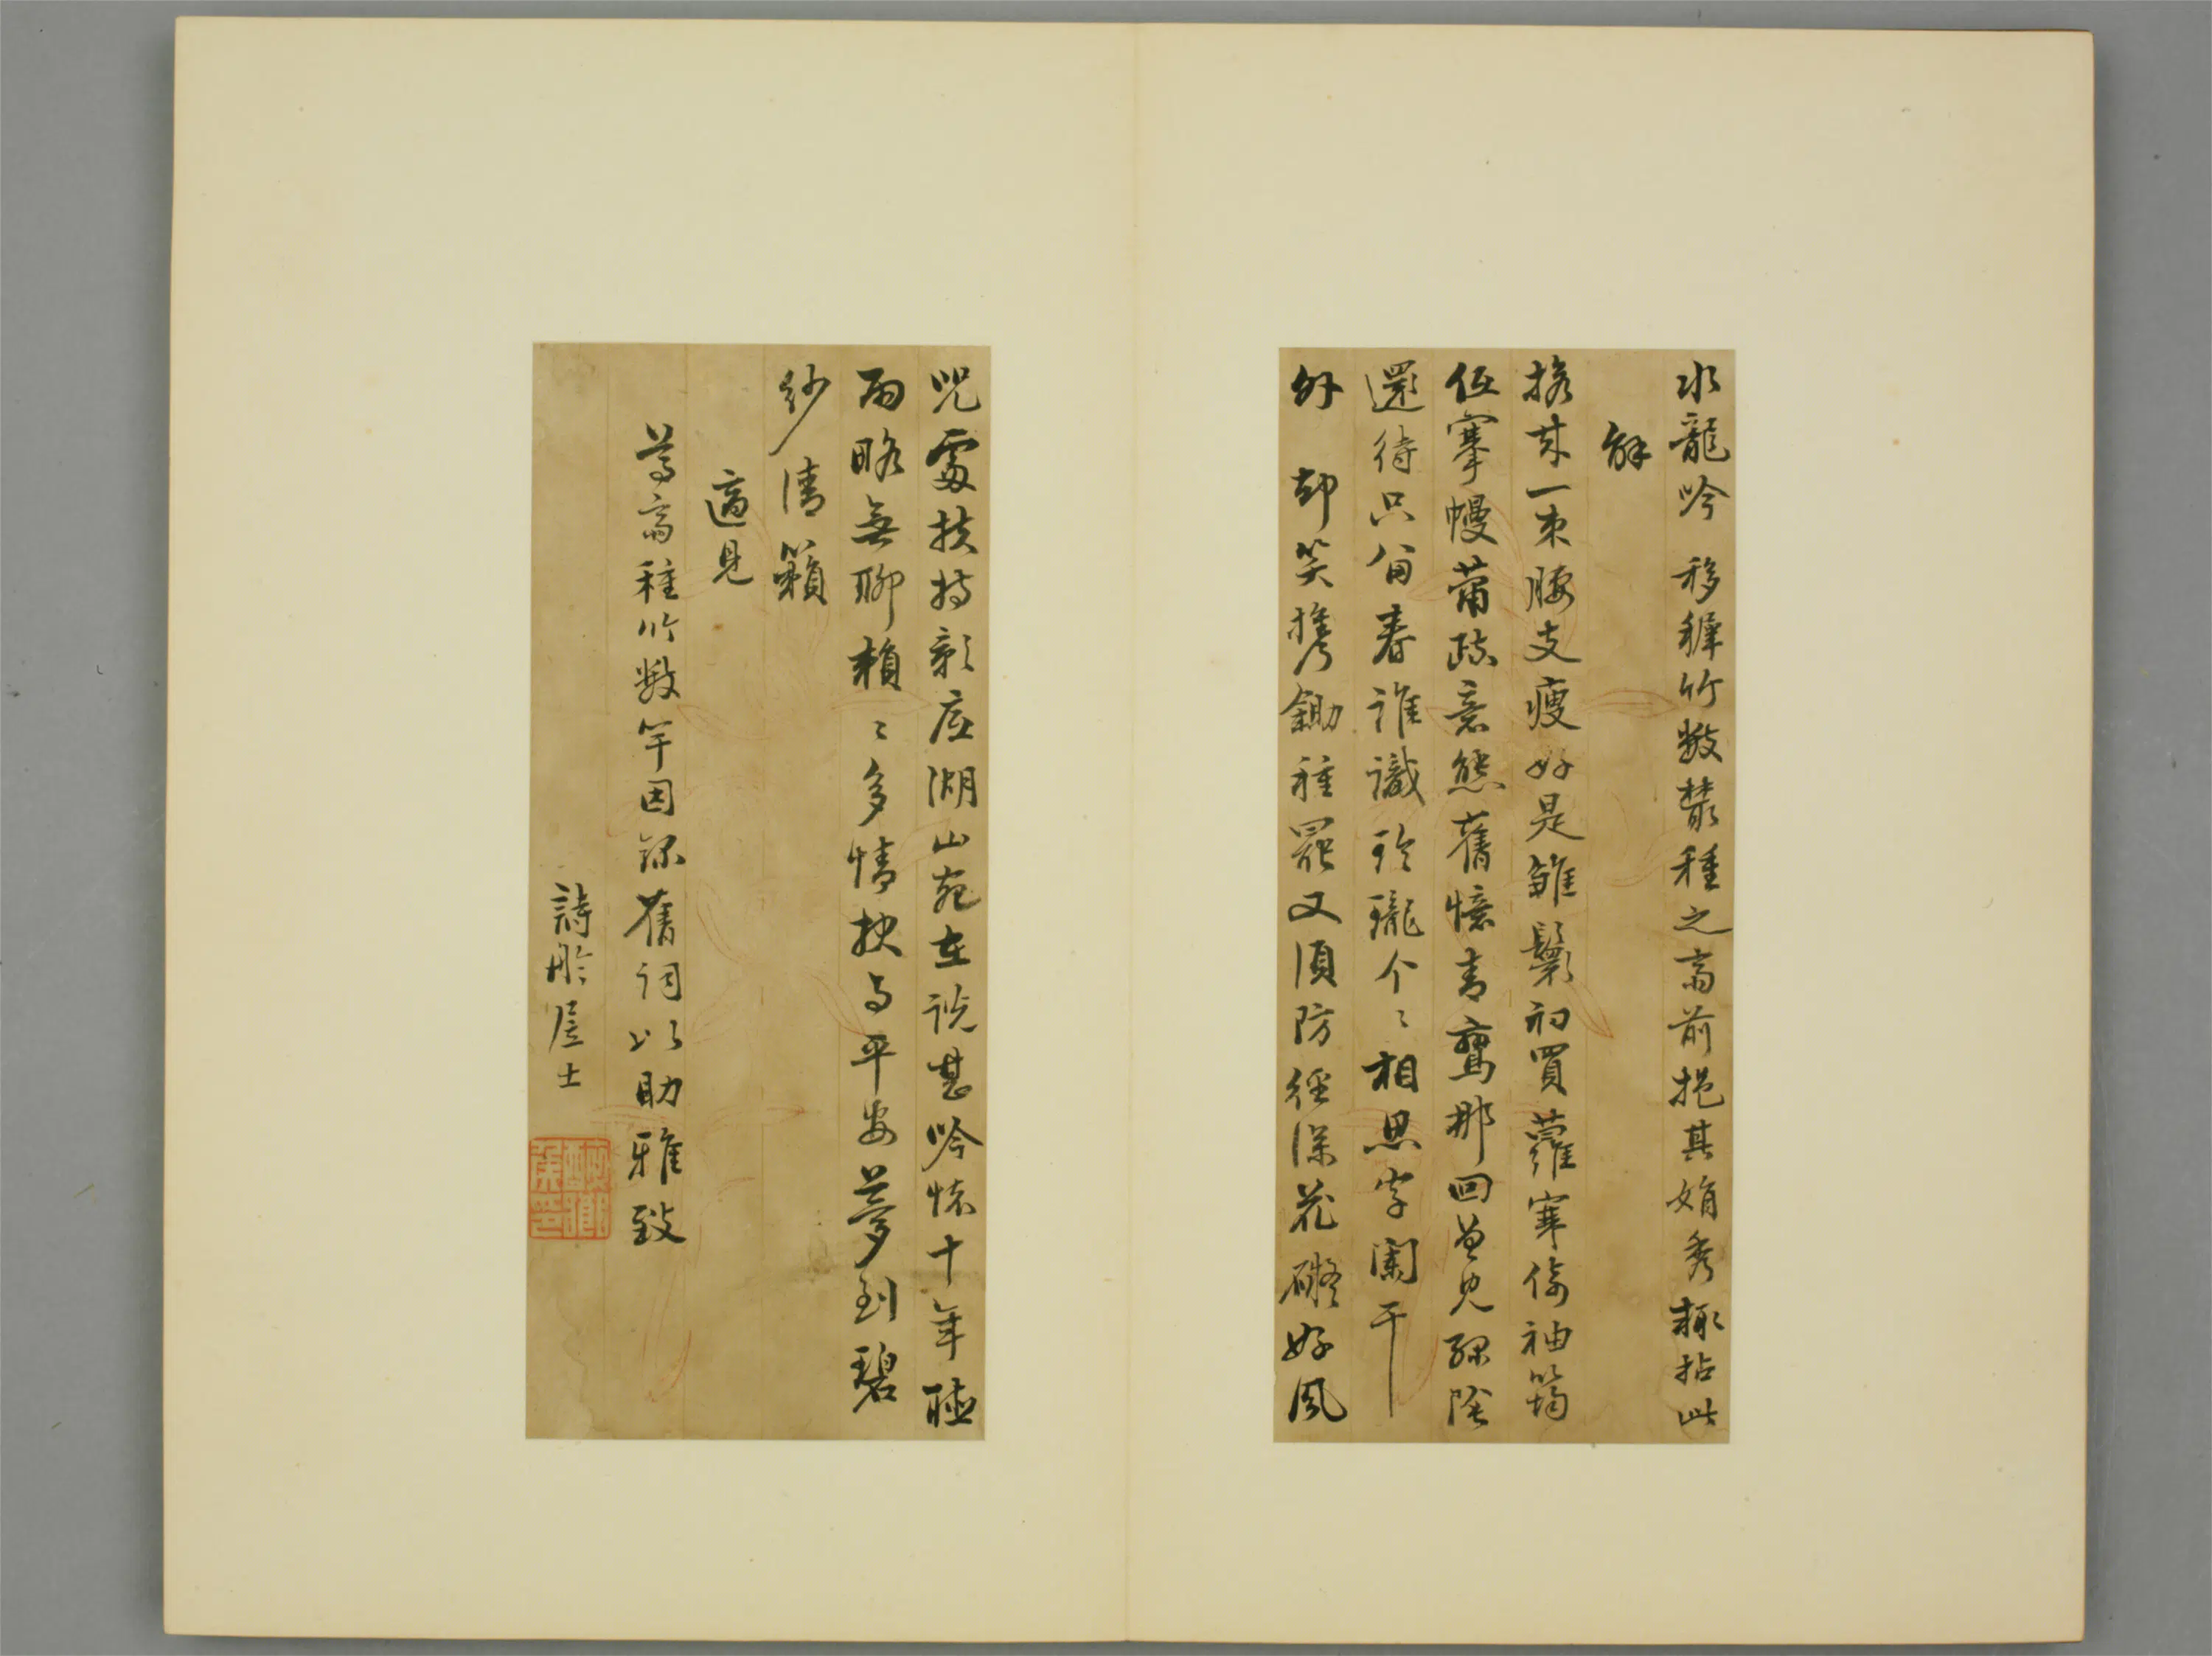 水龍吟 移穉竹數叢種之斋前挹其娟秀輒拈此
解
移來一束腰支瘦好是雛鬟初買蘿寒倚袖筠
低搴幔蕭疏意態舊憶青鸞那回曾見綠陰
還待只留春誰識玲瓏个々相思字闌干
外 却笑携鋤種罷又須防徑深花礙好風
咒處扶持新应湖山宛在說甚吟懷十年聽
雨略無聊賴々多情抉与平安夢到碧
紗清籟
適見
尊斋種竹數竿因録舊詞以助雅致
詩舲居士